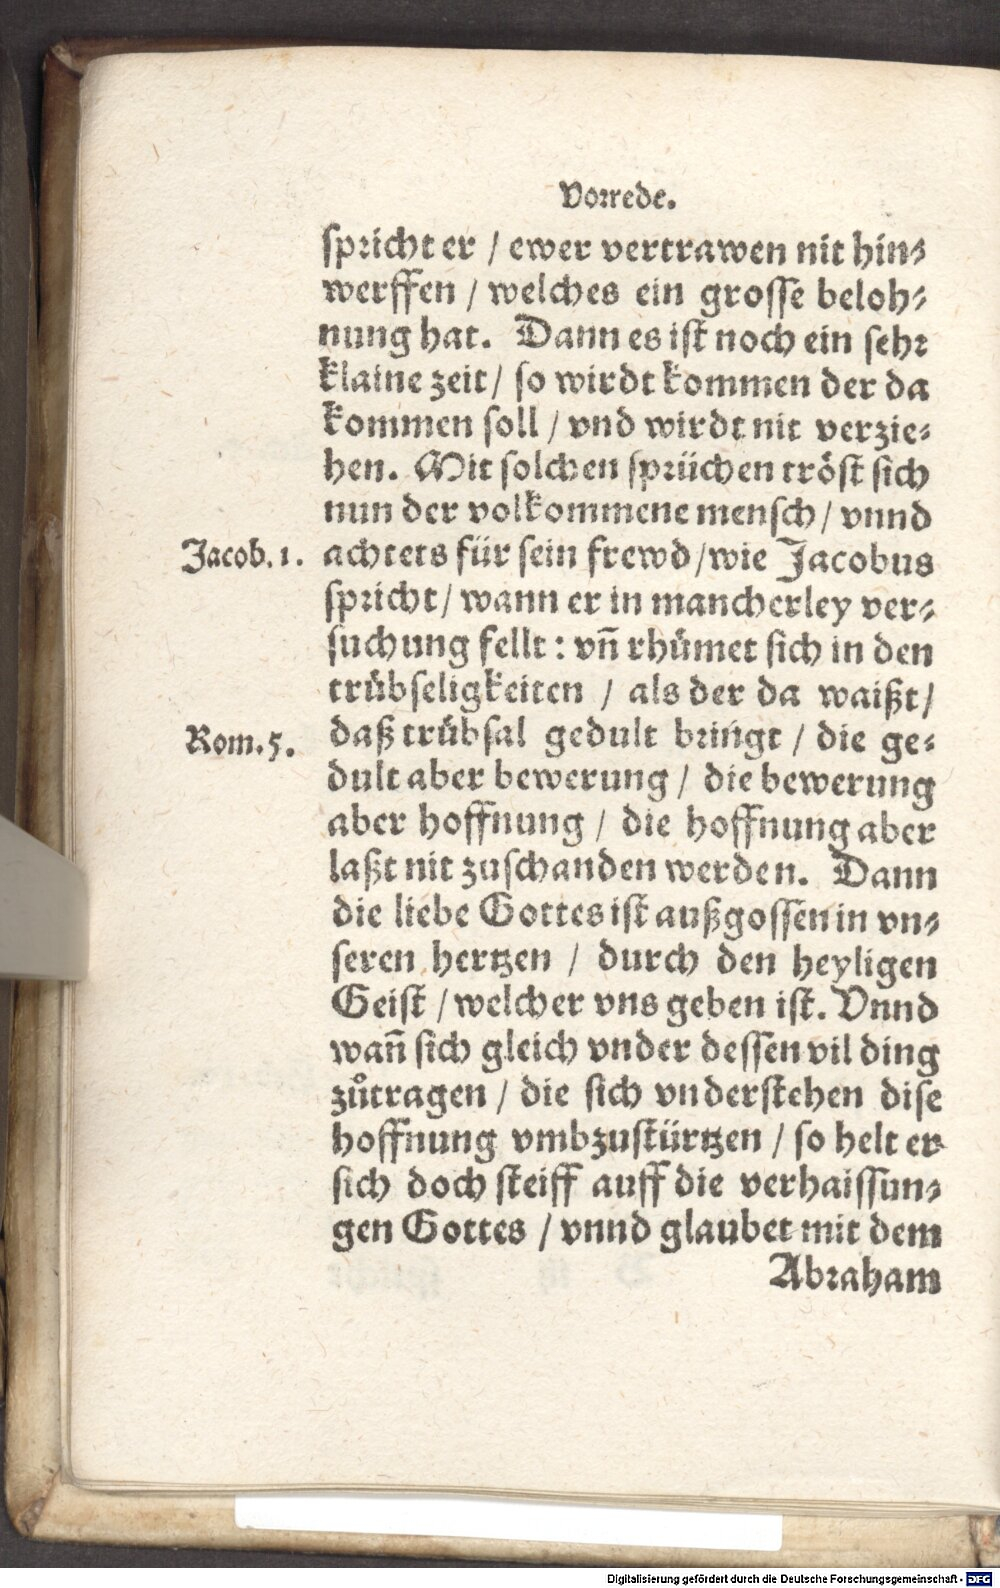 Vorrede.
spricht er / ewer vertrawen nit hin⸗
werffen / welches ein grosse beloh⸗
nung hat. Dann es ist noch ein sehr
klaine zeit / so wirdt kommen der da
kommen soll / vnd wirdt nit verzie⸗
hen. Mit solchen sprüchen tröst sich
nun der volkommene mensch / vnnd
Jacob. 1.
achtets für sein frewd / wie Jacobus
spricht / wann er in mancherley ver⸗
suchung fellt : vñ rhümet sich in den
trübseligkeiten / als der da waißt /
Rom. 5.
daß trübsal gedult bringt / die ge⸗
dult aber bewerung / die bewerung
aber hoffnung / die hoffnung aber
laßt nit zuschanden werden. Dann
die liebe Gottes ist außgossen in vn⸗
seren hertzen / durch den heyligen
Geist / welcher vns geben ist. Vnnd
wañ sich gleich vnder dessen vil ding
zůtragen / die sich vnderstehen dise
hoffnung vmbzustürtzen / so helt er
sich doch steiff auff die verhaissun⸗
gen Gottes / vnnd glaubet mit dem
Abraham
Digitalisierung gefördert durch die Deutsche Forschungsgemeinschaft - DFG